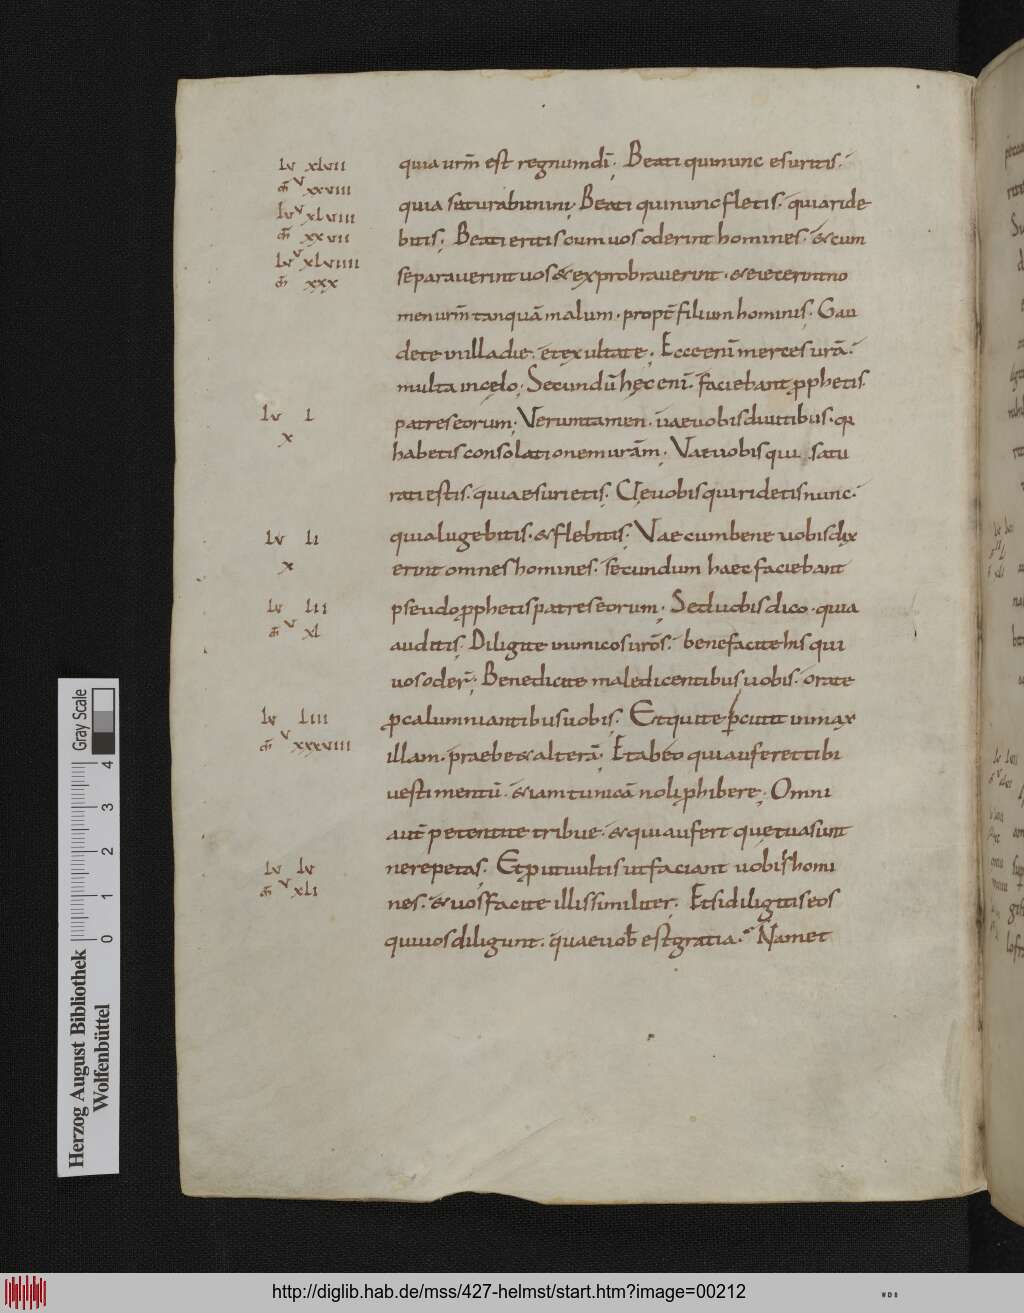 lv xlvii
m̄ v xxviii
lv v xlviii
m̄ xxvii
lv v xlviiii
m̄ xxx
lv l
x
lv li
x
lv lii
m̄ v xl
lv liii
m̄ v xxxviii
lv lv
m̄ v xli
quia urm̄ est regnum dī; Beati qui nunc esuritis.
quia saturabimini; Beati qui nunc fletis. quia ride
bitis; Beati eritis cum vos oderint homines. & cum
separaverint vos & exprobraverint. & eiecerint no
men urm̄ tanquā malum. propt̄ filium hominis; Gau
dete in illa die. et exultate; Ecce enī merces urā.
multa in cęlo; Secundū hęc enī. faciebant ꝓphetis
patres eorum; Veruntamen. uae vobis divitibus. qꝛ
habetis consolationem urām; Vae vobis qui satu
rati estis. quia esurietis; Uę vobis qui ridetis nunc.
quia lugebitis. & flebitis; Vae cum bene vobis dix
erint omnes homines. secundum haec faciebant
pseudoꝓphetis patres eorum; Sed vobis dico. quia
auditis; Diligite inimicos urōs. benefacite his qui
vos oder̄; Benedicite maledicentibus vobis. orate
ꝓ calumniantibus vobis; Et qui te ꝑcutit in max
illam. praebe & alterā; Et ab eo qui auferet tibi
vestimentū. & iam tunicā noli ꝓhibere; Omni
aut̄ petenti te tribue. & qui aufert que tua sunt
ne repetas; Et ꝓut vultis ut faciant vobis homi
nes. & vos facite illis similiter; Et si diligitis eos
qui vos diligunt. quae vob̄ est gratia. Nam et
Herzog August Bibliothek
Wolfenbüttel
Gray Scale
0 1 2 3 4
http://diglib.hab.de/mss/427-helmst/start.htm?image=00212